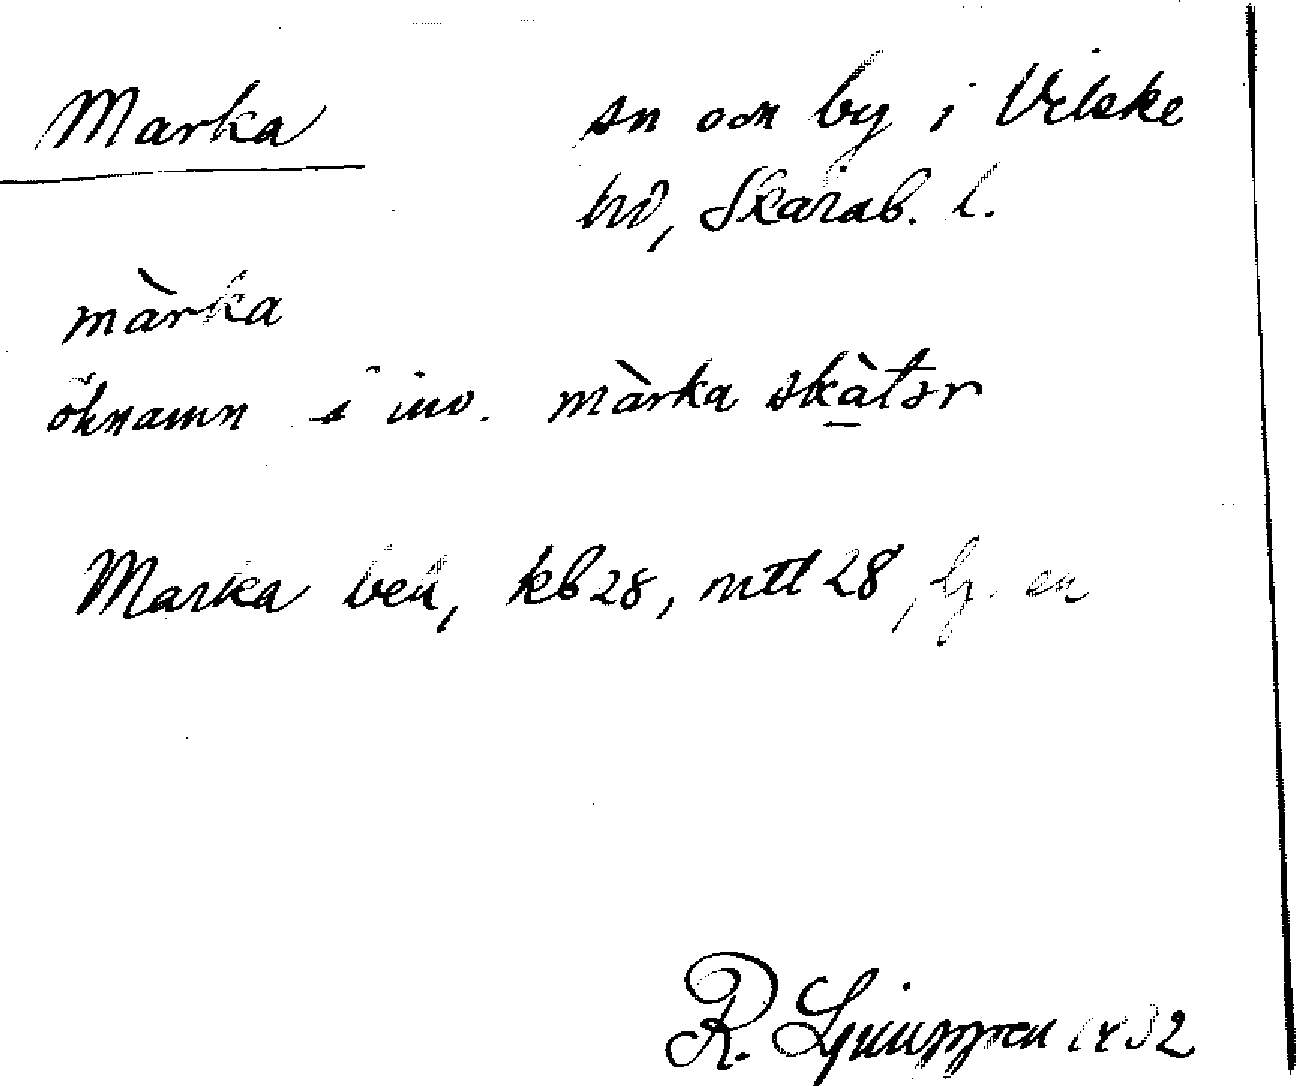 Marka sn och by i Vilske
hd, Skarab. l.
màrka
öknamn å inv. màrka skàtər
Marka bch, kb 28, mtl 28,
R. Ljunggren 1932